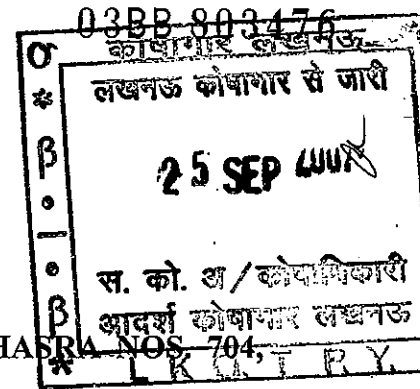 03BB 803476
कोषागार लखनऊ
लखनऊ कोषागार से जारी
25 SEP
स. को. अ/कोषाधिकारी
आदर्श कोषागार लखनऊ
HASRA NOS. 704,
LKO T R Y
σ
*
β
•
|
•
β
*